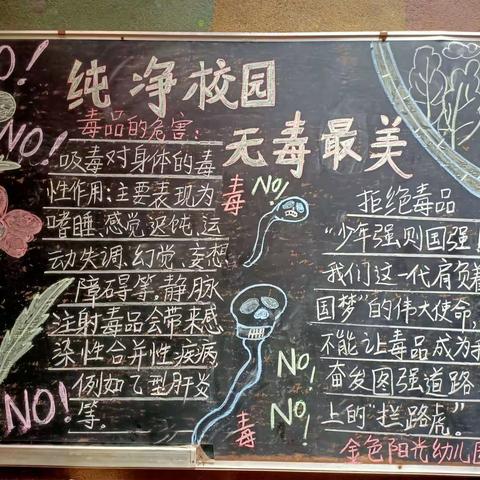 纯净校园
无毒最美
毒品的危害:
吸毒对身体的毒
性作用:主要表现为
嗜睡、感觉迟钝、运
动失调、幻觉、妄想
障碍等。静脉
注射毒品会带来感
染性合并性疾病
例如乙型肝炎
等。
NO!
NO!
NO!
毒
NO!
NO!
NO!
毒
拒绝毒品
“少年强则国强!
我们这一代肩负着
国梦”的伟大使命,
不能让毒品成为我
奋发图强道路
上的“拦路虎”。
金色阳光幼儿园